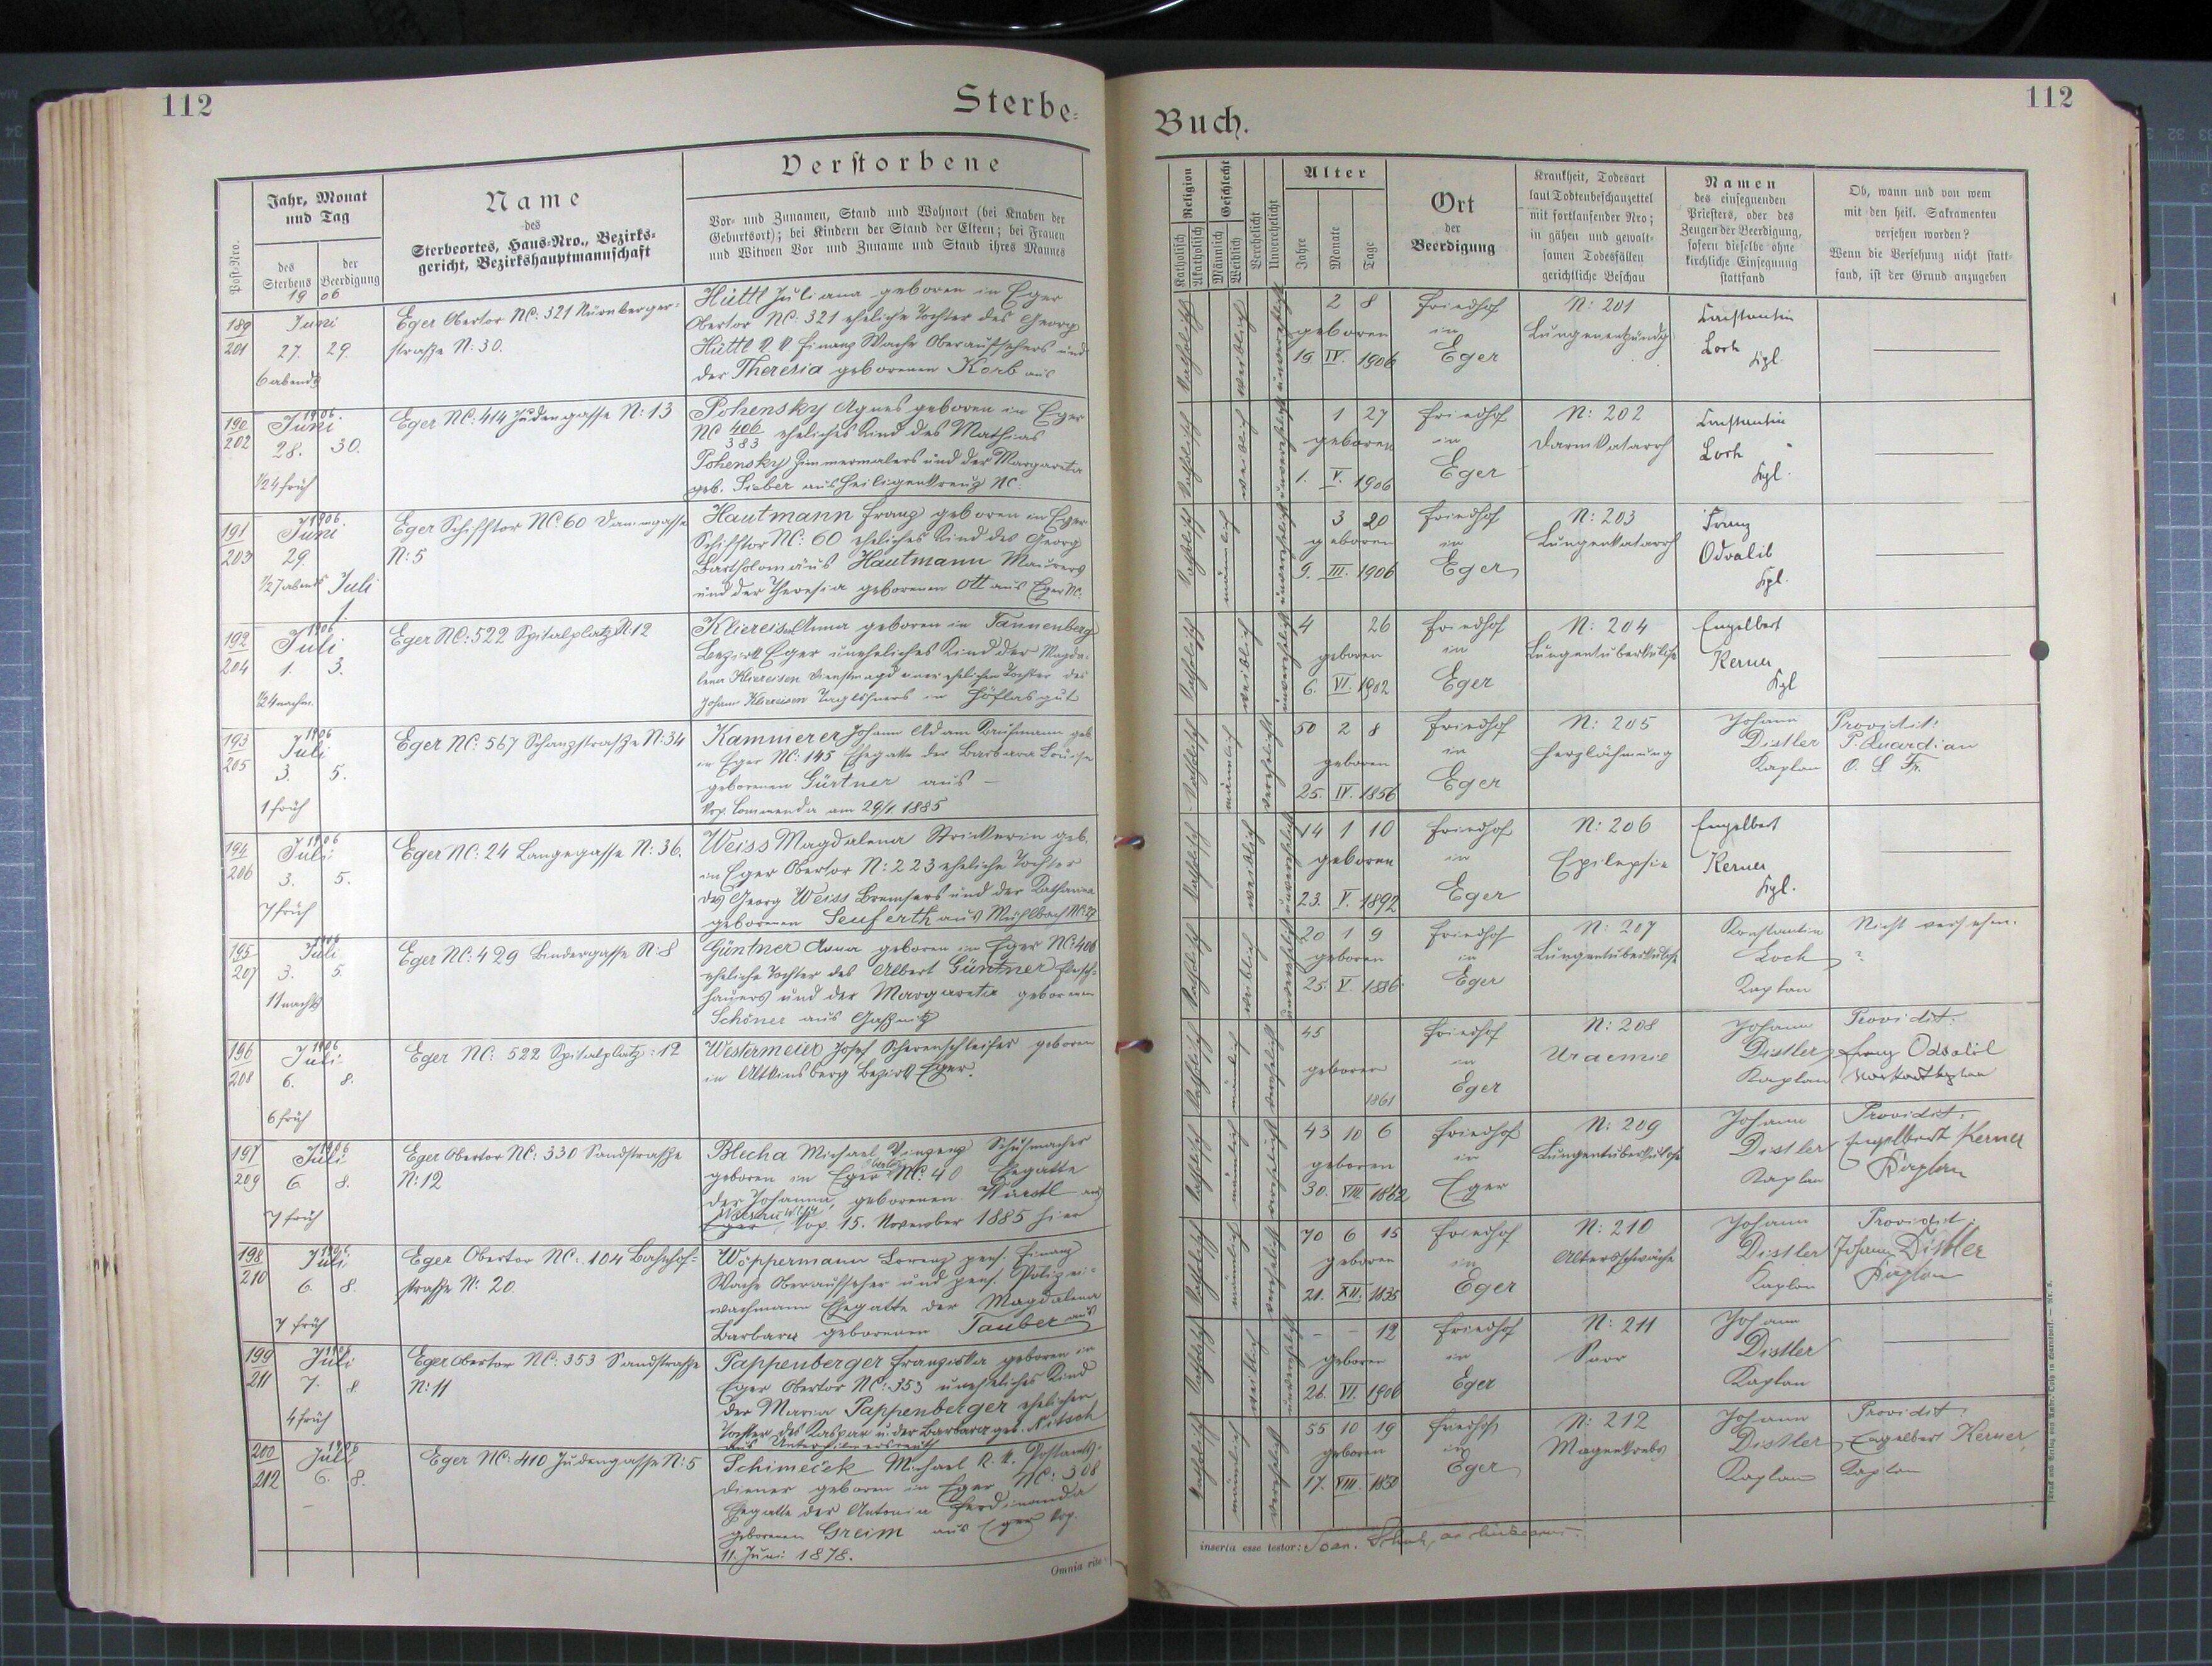 112
Sterbe-
Post-Nro.
Jahr, Monat
und Tag
des
Sterbens
der
Beerdigung
Name
des
Sterbeortes, Haus-Nro., Bezirks-
gericht, Bezirkshauptmannschaft
Verstorbene
Vor- und Zunamen, Stand und Wohnort (bei Knaben der
Geburtsort); bei Kindern der Stand der Eltern; bei Frauen
und Witwen Vor und Zuname und Stand ihres Mannes
1906
189
201
Juni
27. 29.
6 abends
Eger Obertor NC: 321 Nürnberger-
straße N: 30.
Hüttl Juliana geboren in Eger
Obertor NC: 321 eheliche Tochter des Georg
Hüttl k. k. Finanz Wache Oberaufsehers und
der Theresia geborenen Korb aus
190
202
1906.
Juni
28. 30.
1/24 früh
Eger NC: 414 Judengasse N: 13
Pohensky Agnes geboren in Eger
NC 406/383 eheliches Kind des Mathias
Pohensky Zimmermalers und der Margareta
geb. Sieber aus Heiligenkreuz NC:
191
203
1906.
Juni
29.
1/27 abends Juli
1.
Eger Schifftor NC: 60 Dammgasse
N: 5
Hautmann Franz geboren in Eger
Schifftor NC: 60 eheliches Kind des Georg
Bartholomäus Hautmann Maurers
und der Theresia geborenen Ott aus Eger NC:
192
204
1906
Juli
1. 3.
1/24 nachm.
Eger NC: 522 Spitalplatz N: 12
Kliereisen Anna geboren in Tannenberg
Bezirk Eger uneheliches Kind der Magda-
lena Kliereisen Dienstmagd einer ehelichen Tochter des
Johann Kliereisen Taglöhners in Höflasgut
193
205
1906
Juli
3. 5.
1 früh
Eger NC: 567 Schanzstraße N: 34
Kammerer Johann Adam Kaufmann geb.
in Eger NC: 145 Ehegatte der Barbara Louise
geborenen Gürtner aus –
Kop. Commenda am 29/1. 1885
194
206
1906
Juli
3. 5.
7 früh
Eger NC: 24 Langegasse N: 36.
Weiss Magdalena Strickerin geb.
in Eger Obertor N: 223 eheliche Tochter
des Georg Weiss Bremsers und der Katharina
geborenen Seuferth aus Mühlbach NC: 27
195
207
Juli
3. 5.
11 nachts
Eger NC: 429 Bindergasse N: 8
Güntner Anna geboren in Eger NC: 406
eheliche Tochter des Albert Güntner Fleisch-
hauers und der Margareta geborenen
Schöner aus Gaßnitz
196
208
1906
Juli
6. 8.
6 früh
Eger NC: 522 Spitalplatz: 12
Westermeier Josef Scherenschleifer geboren
in Altkinsberg Bezirk Eger.
197
209
1906
Juli
6. 8.
7 früh
Eger Obertor NC: 330 Sandstraße
N: 12
Blecha Michael Vinzenz Schuhmacher
geboren in Eger NC: 40 Ehegatte
der Johanna, geborenen Würstl aus
Eger Kop. 15. November 1885 hier
198
210
Juli
6. 8.
7 früh
Eger Obertor NC: 104 Bahnhof-
straße N: 20
Wöppermann Lorenz pens. Finanz
Wache Oberaufseher und pens. Polizei-
wachmann Ehegatte der Magdalena
Barbara geborenen Tauber aus
199
211
1906
Juli
7. 8.
4 früh
Eger Obertor NC: 353 Sandstraße
N: 11
Pappenberger Franziska geboren in
Eger Obertor NC: 353 uneheliches Kind
der Maria Pappenberger ehelichen
Tochter des Kaspar u. der Barbara geb. Nitsch
200
212
1906
Juli
6. 8.
Eger NC: 410 Judengasse N: 5
Schimeček Michael k. k. Postamts-
diener geboren in Eger NC: 308
Ehegatte der Antonia Ferdinanda
geborenen Greim aus Eger Kop.
11. Juni 1878.
Omnia rite
112
Buch.
Religion
Katholisch
Akatholisch
Geschlecht
Männlich
Weiblich
Verehelicht
Unverehelicht
Alter
Jahre
Monate
Tage
Ort
der
Beerdigung
Krankheit, Todesart
laut Todtenbeschauzettel
mit fortlaufender Nro;
in gähen und gewalt-
samen Todesfällen
gerichtliche Beschau
Namen
des einsegnenden
Priesters, oder des
Zeugen der Beerdigung,
sofern dieselbe ohne
kirchliche Einsegnung
stattfand
Ob, wann und von wem
mit den heil. Sakramenten
versehen worden?
Wenn die Versehung nicht statt-
fand, ist der Grund anzugeben
katholisch weiblich unverehelicht
2 8
geboren
19. IV. 1906
Friedhof
in
Eger
N: 201
Lungenentzündg
Konstantin
Loch
Kpl.
katholisch weiblich unverehelicht
1 27
geboren
1. V. 1906
Friedhof
in
Eger
N: 202
Darmkatarrh
Konstantin
Loch
Kpl.
katholisch männlich unverehelicht
3 20
geboren
9. III. 1906
Friedhof
in
Eger
N: 203
Lungenkatarrh
Franz
Odvalil
Kpl.
katholisch weiblich unverehelicht
4 26
geboren
6. VI. 1902
Friedhof
in
Eger
N: 204
Lungentuberkulose
Engelbert
Kerner
Kpl
katholisch männlich verehelicht
50 2 8
geboren
25. IV. 1856
Friedhof
in
Eger
N: 205
Herzlähmung
Johann
Distler
Kaplan
Providit:
P. Quardian
O. S. Fr.
katholisch weiblich unverehelicht
14 1 10
geboren
23. V. 1892
Friedhof
in
Eger
N: 206
Epilepsie
Engelbert
Kerner
Kpl.
katholisch weiblich unverehelicht
20 1 9
geboren
25. V. 1886
Friedhof
in
Eger
N: 207
Lungentuberkulose
Konstantin
Loch
Kaplan
Nicht versehen.
?
katholisch männlich verehelicht
45
geboren
1861
Friedhof
in
Eger
N: 208
Uraemie
Johann
Distler
Kaplan
Providit:
Franz Odvalil
katholisch männlich verehelicht
43 10 6
geboren
30. VIII. 1862
Friedhof
in
Eger
N: 209
Lungentuberkulose
Johann
Distler
Kaplan
Providit:
Engelbert Kerner
Kaplan
katholisch männlich verehelicht
70 6 15
geboren
21. XII. 1835
Friedhof
in
Eger
N: 210
Altersschwäche
Johann
Distler
Kaplan
Providit:
Johann Distler
Kaplan
katholisch weiblich unverehelicht
– – 12
geboren
26. VI. 1906
Friedhof
in
Eger
N: 211
Soor
Johann
Distler
Kaplan
katholisch männlich verehelicht
55 10 19
geboren
17. VIII. 1850
Friedhof
in
Eger
N: 212
Magenkrebs
Johann
Distler
Kaplan
Providit:
Engelbert Kerner,
Kaplan
inserta esse testor: